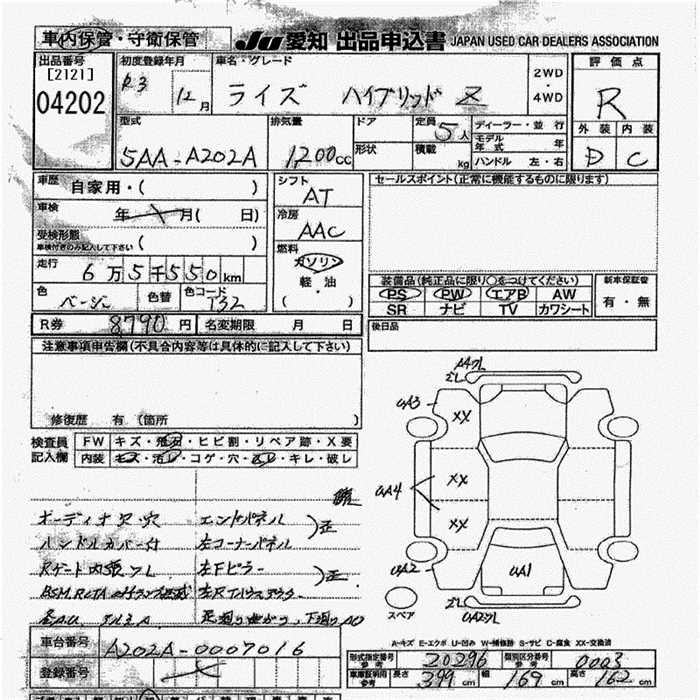 車内保管・守衛保管
JU 愛知 出品申込書 JAPAN USED CAR DEALERS ASSOCIATION
出品番号
[2121]
04202
初度登録年月
R3
12月
車名・グレード
ライズ ハイブリッド Z
2WD
・
4WD
評価点
R
外装 内装
D C
型式
5AA-A202A
排気量
1,200cc
ドア
形状
定員
5人
積載
kg
ディーラー・並行
モデル年式 年
ハンドル 左・右
車歴
自家用・( )
車検
年 月( 日)
受検形態
車検付きのみ記入して下さい ( )
走行
6万5千550km
色
ベージュ
色替
色コード
T32
シフト
AT
冷房
AAC
燃料
ガソリン
軽・油
( )
セールスポイント(正常に機能するものに限ります)
装備品(純正品に限り○をつけてください)
PS PW エアB AW
SR ナビ TV カワシート
新車保証書
有・無
R券 8790円 名変期限 月 日
後日品
注意事項申告欄(不具合内容等は具体的に記入して下さい)
修復歴 有(箇所 )
検査員
記入欄
FW キズ・飛石・ヒビ割・リペア跡・X要
内装 キズ・汚レ・コゲ・穴・スレ・キレ・破レ
オーディオ欠・穴
ハンドルカバー付
Rゲート内張フレ
エンドパネル
左コーナーパネル
歪
左Fピラー
歪
足廻り曲がり、下廻りAO
A4フレ
ズレ
UA3
XX
XX
XX
UA4
UA2
UA1
ズレ
スペア
A-キズ E-エクボ U-凹み W-補修跡 S-サビ C-腐食 XX-交換済
車台番号
A202A-0007016
登録番号
形式指定番号
参考
20296
類別区分番号
参考
0003
車庫証明用
参考
長さ 399cm 幅 169cm 高さ 162cm